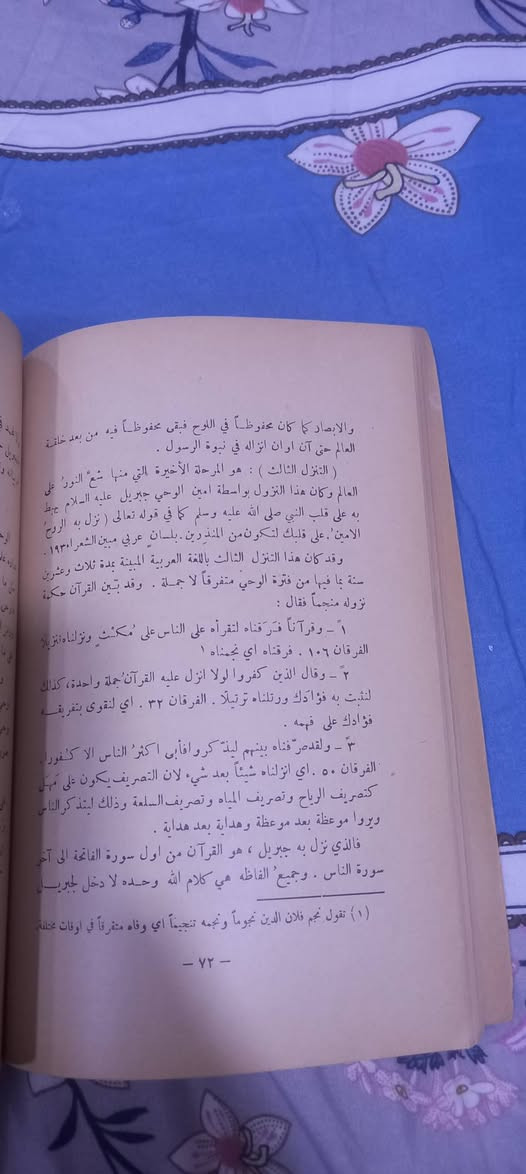 والابصار كما كان محفوظاً في اللوح فبقى محفوظاً فيه من بعد خلقة
العالم حتى آن اوان انزاله في نبوة الرسول .
( التنزل الثالث ) : هو المرحلة الأخيرة التي منها شعَّ النورُ على
العالم وكان هذا النزول بواسطة امين الوحي جبريل عليه السلام هبط
به على قلب النبي صلى الله عليه وسلم كما في قوله تعالى ( نزل به الروحُ
الامينُ. على قلبك لتكون من المنذرين. بلسان عربي مبين الشعراء ١٩٣ .
وقد كان هذا التنزل الثالث باللغة العربية المبينة بمدة ثلاث وعشرين
سنة بما فيها من فترة الوحي متفرقاً لا جملة . وقد بيّن القرآن حكمة
نزوله منجماً فقال :
١ً – وقرآناً فَرَقناه لتقرأه على الناس على مُكثٍ ونزلناه تنزيلا
الفرقان ١٠٦ . فرقناه اي نجمناه ١
٢ً – وقال الذين كفروا لولا انزل عليه القرآنُ جملة واحدة، كذلك
لنثبت به فؤادك ورتلناه ترتيلا . الفرقان ٣٢ . اي لنقوى بتفريقه
فؤادك على فهمه .
٣ً – ولقد صرّفناه بينهم ليذكروا فأبى اكثرُ الناس الا كفورا.
الفرقان ٥٠ . اي انزلناه شيئاً بعد شيء لان التصريف يكون على مَهَل
كتصريف الرياح وتصريف المياه وتصريف السلعة وذلك ليتذكر الناس
ويروا موعظة بعد موعظة وهداية بعد هداية .
فالذي نزل به جبريل ، هو القرآن من اول سورة الفاتحة الى آخر
سورة الناس . وجميعُ الفاظه هي كلام الله وحده لا دخل لجبريل
(١) تقول نجم فلان الدين نجوماً ونجمه تنجيماً اي وفاه متفرقاً في اوقات مختلفة
– ٧٢ –